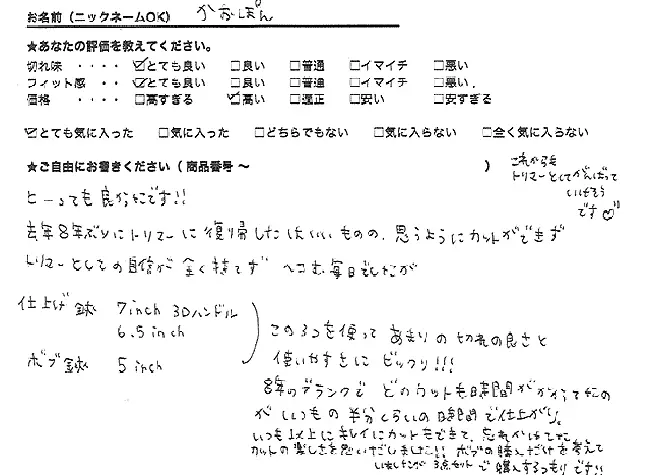 お名前（ニックネームOK） かおぽん
★あなたの評価を教えてください。
切れ味 ・・・・ ☑とても良い □良い □普通 □イマイチ □悪い
フィット感 ・・・・ ☑とても良い □良い □普通 □イマイチ □悪い.
価格 ・・・・ □高すぎる ☑高い □適正 □安い □安すぎる
☑とても気に入った □気に入った □どちらでもない □気に入らない □全く気に入らない
★ご自由にお書きください（ 商品番号 ～ ）
これからも
トリマーとしてがんばって
いけそう
です♡
とーっても良かったです!!
去年8年ぶりにトリマーに復帰したはいいものの、思うようにカットができず
トリマーとしての自信が全く持てず ヘコむ毎日でしたが
仕上げ鋏 7inch 3Dハンドル
6.5inch
ボブ鋏 5inch
この3つを使って あまりの切れの良さと
使いやすさに ビックリ!!!
8年のブランクで どのカットも時間がかかってたの
が いつもの半分くらいの時間で仕上がり、
いつも以上にキレイにカットもできて、忘れかけてた
カットの楽しさを思いだしました!! ボブの購入だけを考えて
いましたが 3点セットで購入するつもりです!!